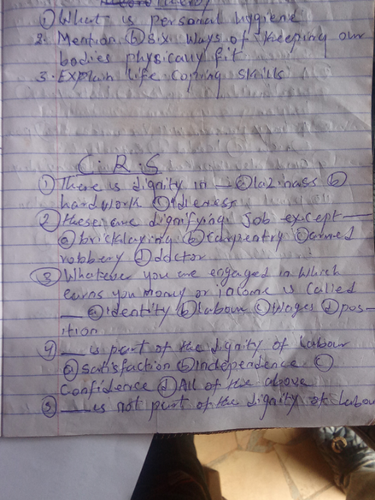 ① What is personal hygiene
2. Mention (b) six ways of keeping our
bodies physically fit
3. Explain life coping skills
C.R.S
① There is dignity in — ⓐ laziness ⓑ
hardwork ⓒ idleness
② these are dignifying job except —
ⓐ bricklaying ⓑ carpentry ⓒ armed
robbery ⓓ doctor
③ Whatever you are engaged in which
earns you money or income is called
— ⓐ identity ⓑ labour ⓒ wages ⓓ pos-
ition
④ — is part of the dignity of labour
ⓐ satisfaction ⓑ independence ⓒ
Confidence ⓓ All of the above
⑤ — is not part of the dignity of labour